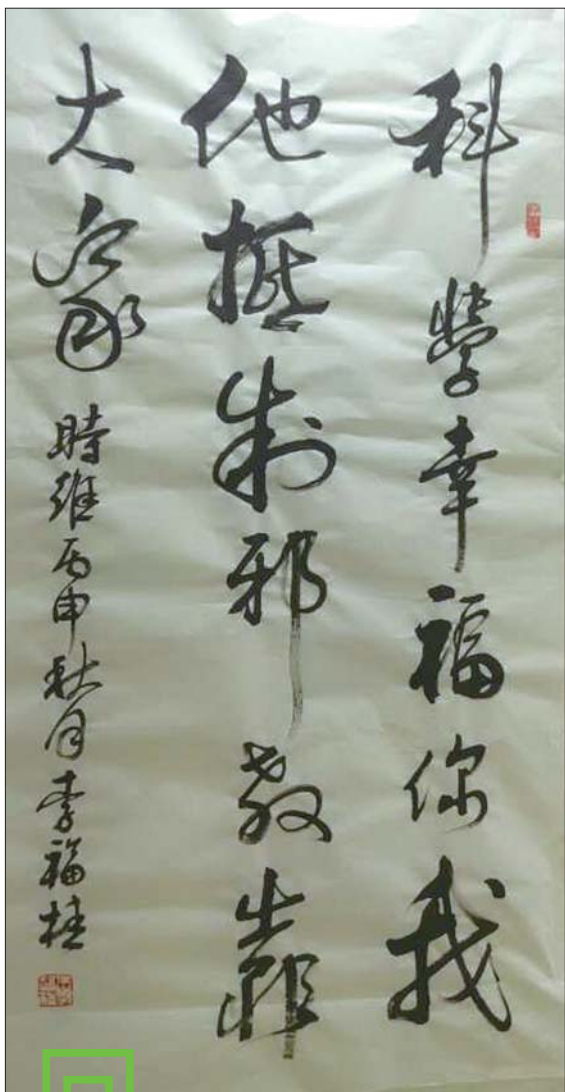 科學幸福你我
他抵制邪教靠
大家 時維丙申秋月李福桂